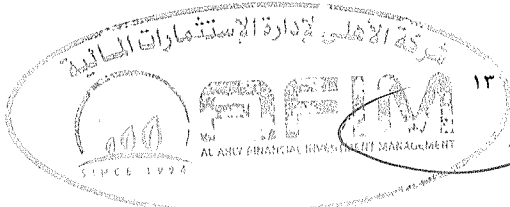 شركة الأهلي لإدارة الإستثمارات المالية
١٣
afim
AL AHLY FINANCIAL INVESTMENT MANAGEMENT
SINCE 1994